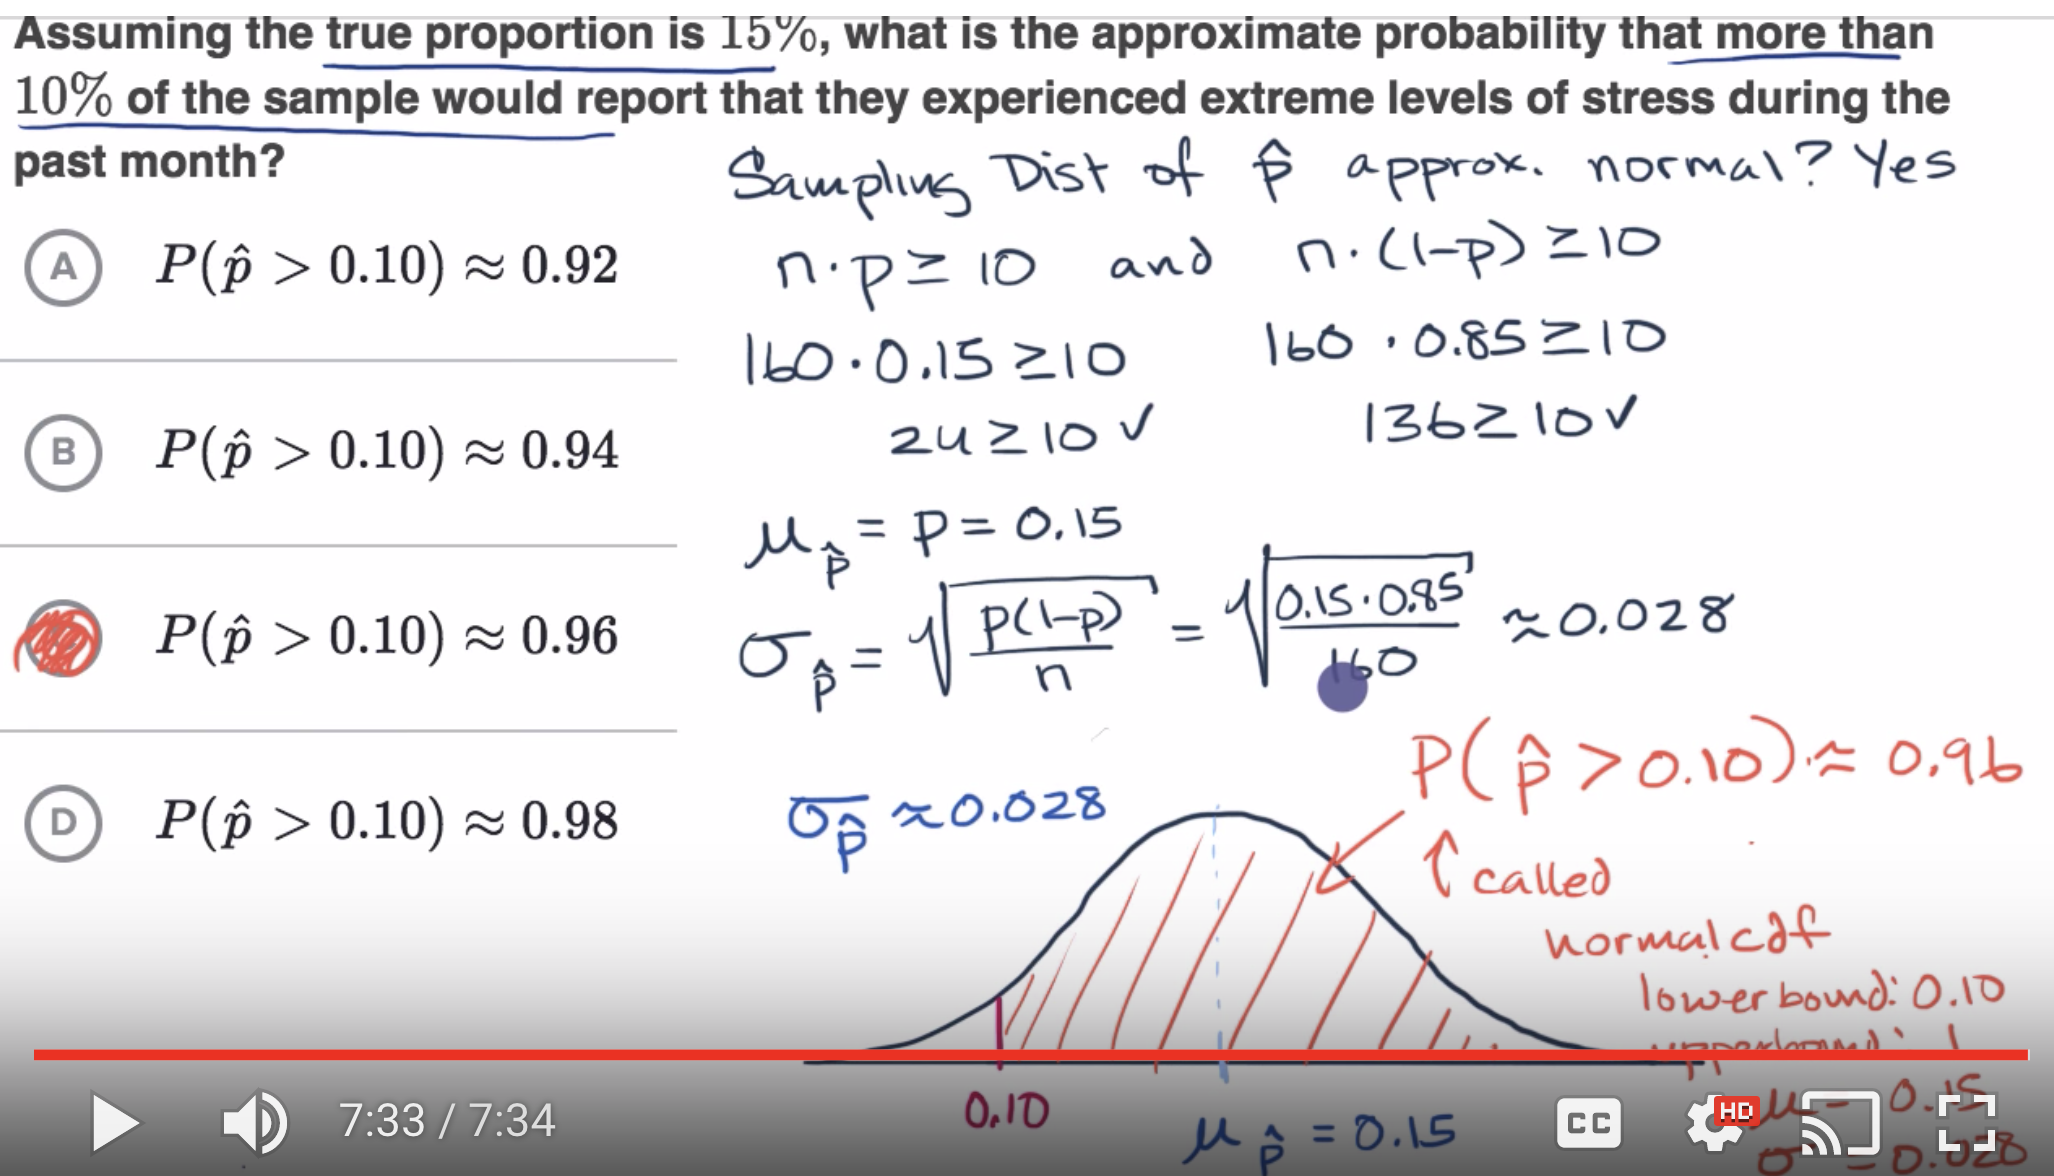 Assuming the true proportion is 15%, what is the approximate probability that more than
10% of the sample would report that they experienced extreme levels of stress during the
past month?
A P(p̂ > 0.10) ≈ 0.92
B P(p̂ > 0.10) ≈ 0.94
P(p̂ > 0.10) ≈ 0.96
D P(p̂ > 0.10) ≈ 0.98
Sampling Dist of p̂ approx. normal? Yes
n·p ≥ 10 and n·(1-p) ≥ 10
160·0.15 ≥ 10 160·0.85 ≥ 10
24 ≥ 10 ✓ 136 ≥ 10 ✓
μp̂ = p = 0.15
σp̂ = √(p(1-p)/n) = √(0.15·0.85/160) ≈ 0.028
P(p̂ > 0.10) ≈ 0.96
σp̂ ≈ 0.028
↑ called
normalcdf
lower bound: 0.10
upper bound: 1
μ = 0.15
σ = 0.028
0.10
μp̂ = 0.15
7:33 / 7:34
CC
HD